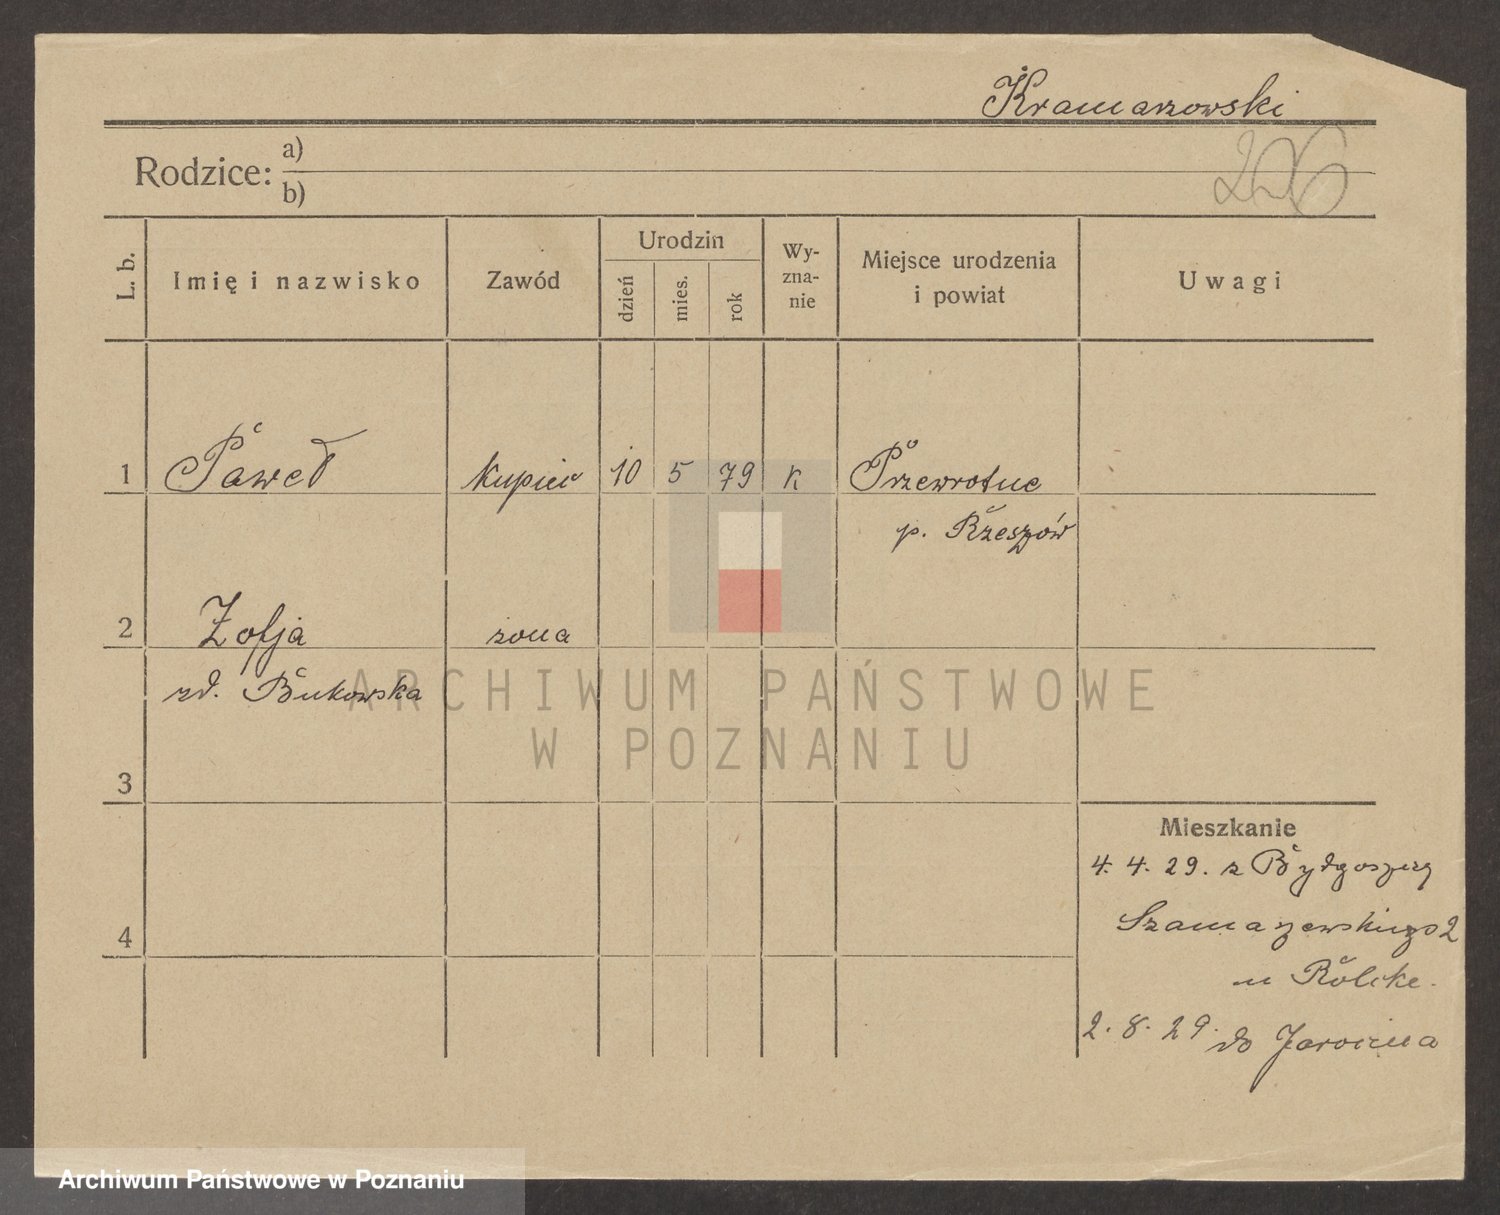 Kramarzowski
Rodzice: a)
b)
206
L. b.
Imię i nazwisko
Zawód
Urodzin
dzień
mies.
rok
Wy-
zna-
nie
Miejsce urodzenia
i powiat
Uwagi
1 Paweł kupiec 10 5 79 k Przewrotne
p. Rzeszów
2 Zofja żona
zd. Bukowska
3
4
Mieszkanie
4. 4. 29. z Bydgoszczy
Szamarzewskiego 2
u
2. 8. 29. do Jarocina
ARCHIWUM PAŃSTWOWE
W POZNANIU
Archiwum Państwowe w Poznaniu